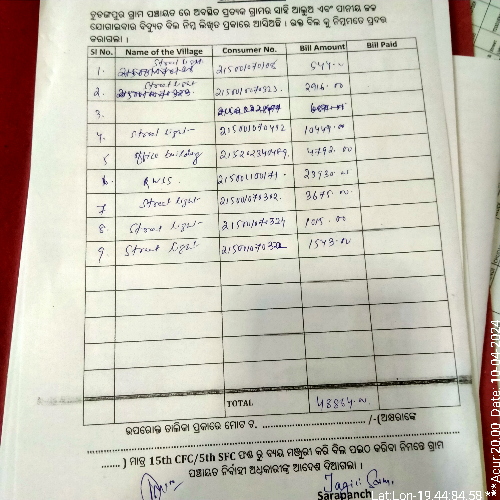 ଚୁଡଙ୍ଗପୁର ଗ୍ରାମ ପଞ୍ଚାୟତ ରେ ଅବସ୍ଥିତ ପ୍ରତ୍ୟକ ଗ୍ରାମର ସାହି ଆଲୁଅ ଏବଂ ପାନୀୟ ଜଳ
ଯୋଗାଇବାର ବିଦ୍ୟୁତ ବିଲ ନିମ୍ନ ଲିଖିତ ପ୍ରକାରେ ଆସିଅଛି । ଉକ୍ତ ବିଲ କୁ ନିମ୍ନମତେ ପ୍ରଦାନ
କରାଗଲା ।
Sl No. Name of the Village Consumer No. Bill Amount Bill Paid
1. Street light
2. Street light 215001070323 2916.00
3.
4. Street light 215001070492 10449.00
5 Office building 4792.00
6. RWSS 23930.00
7 Street light 215001070302 3675.00
8 Street light 215001070324 1015.00
9. Street light 215001070322 1543.00
TOTAL 48864.00
ଉପରୋକ୍ତ ତାଲିକା ପ୍ରକାରେ ମୋଟ ଟ. ................ /-(ଅକ୍ଷରାଙ୍କେ
...... ) ମାତ୍ର 15th CFC/5th SFC ପାଣ୍ଠି ରୁ ବ୍ୟୟ ମଞ୍ଜୁରୀ କରି ବିଲ ପଇଠ କରିବା ନିମନ୍ତେ ଗ୍ରାମ
ପଞ୍ଚାୟତ ନିର୍ବାହୀ ଅଧିକାରୀଙ୍କୁ ଆଦେଶ ଦିଆଗଲା ।
Sarapanch
Lat Lon-19.44:84.58
Acur:20.00, Date: 10-04-2024